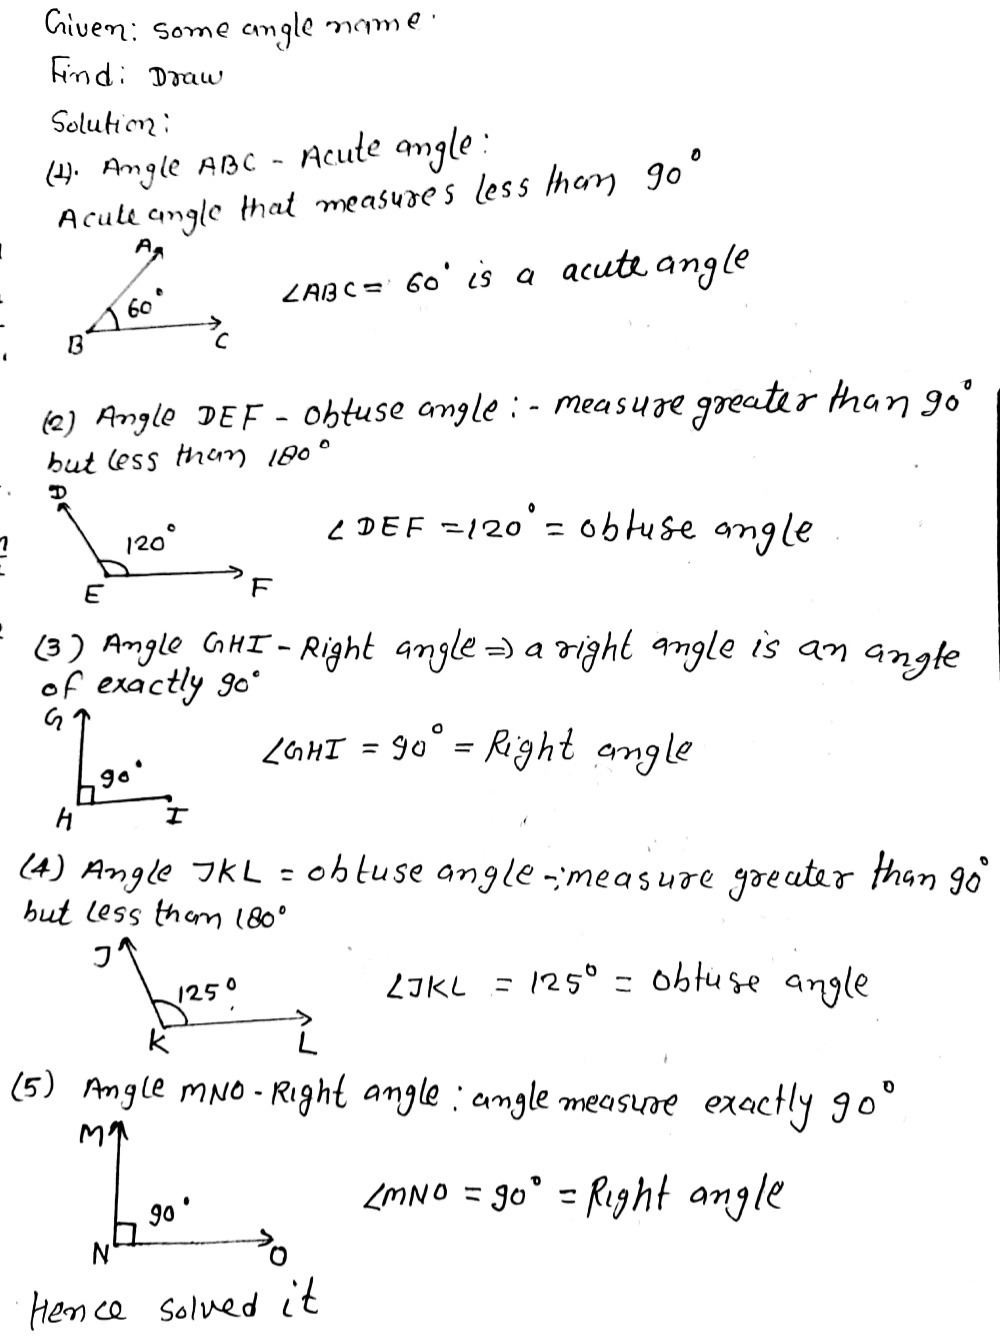 Given: some angle name.
Find: Draw
Solution:
(1). Angle ABC - Acute angle:
Acute angle that measures less than 90°
A
60°
B
C
∠ABC = 60° is a acute angle
(2) Angle DEF - obtuse angle :- measure greater than 90°
but less than 180°
D
120°
E
F
∠DEF = 120° = obtuse angle
(3) Angle GHI - Right angle ⇒ a right angle is an angle
of exactly 90°
G
90°
H
I
∠GHI = 90° = Right angle
(4) Angle JKL = obtuse angle -: measure greater than 90°
but less than 180°
J
125°
K
L
∠JKL = 125° = obtuse angle
(5) Angle MNO - Right angle : angle measure exactly 90°
M
90°
N
O
∠MNO = 90° = Right angle
Hence solved it